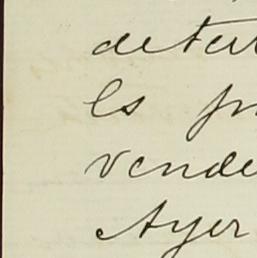 deter
es pr
vende
Ayer